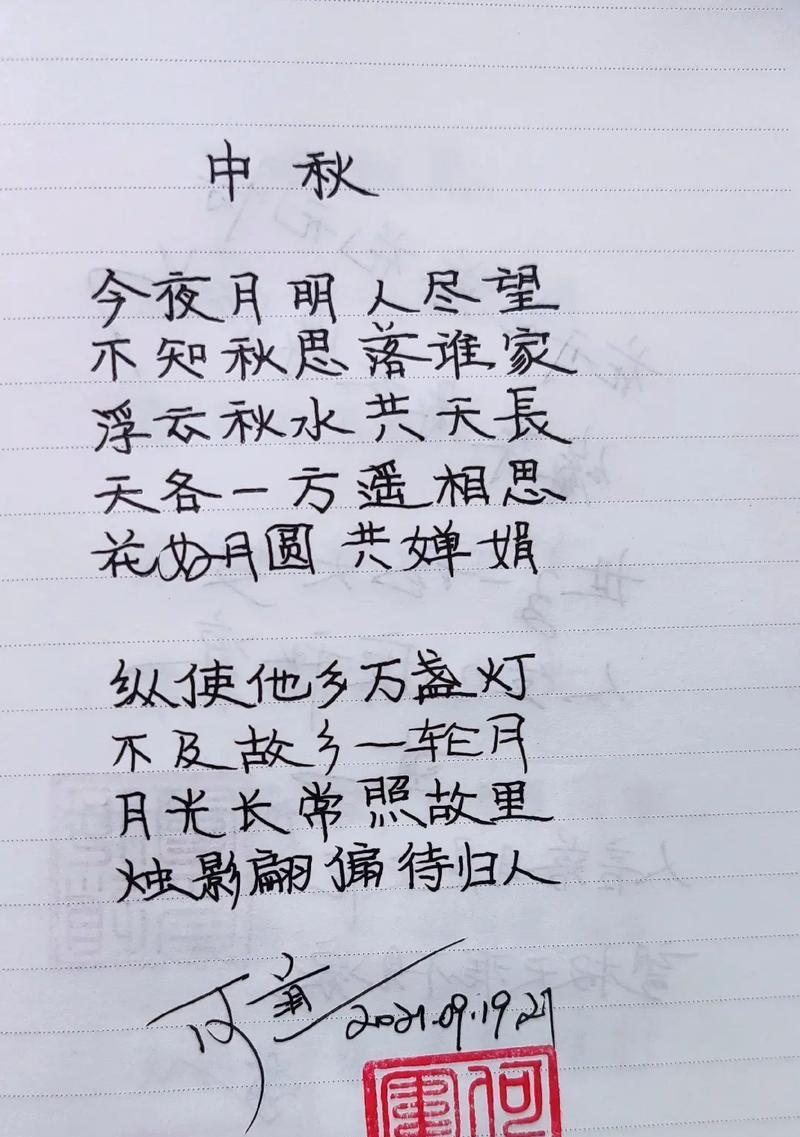 中秋
今夜月明人尽望
不知秋思落谁家
浮云秋水共天長
天各一方遥相思
花好月圆共婵娟
纵使他乡万盏灯
不及故乡一轮月
月光长常照故里
烛影翩偏待归人
2021.09.19.21
何